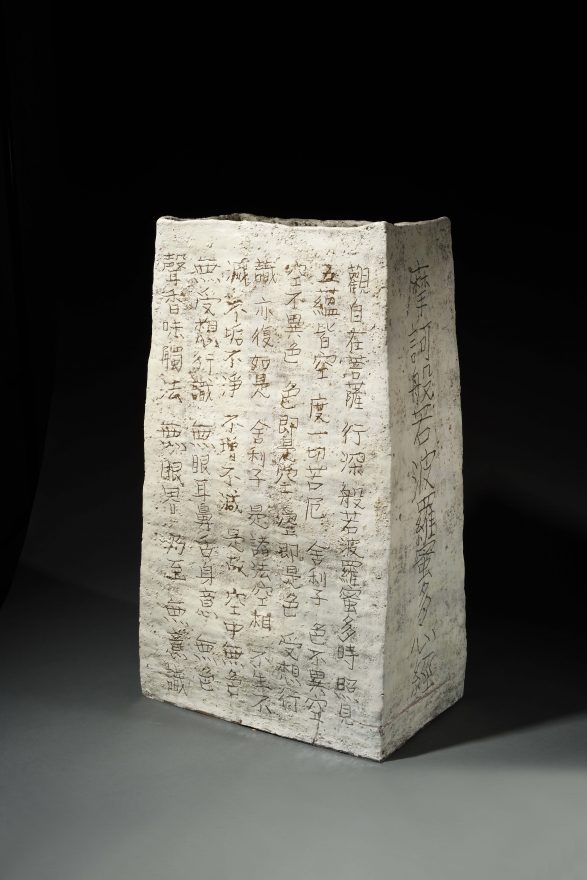 摩訶般若波羅蜜多心經
觀自在菩薩 行深般若波羅蜜多時 照見
五蘊皆空 度一切苦厄 舍利子 色不異空
空不異色 色即是空 空即是色 受想行
識 亦復如是 舍利子 是諸法空相 不生不
滅 不垢不淨 不增不減 是故 空中無色
無受想行識 無眼耳鼻舌身意 無色
聲香味觸法 無眼界 乃至 無意識